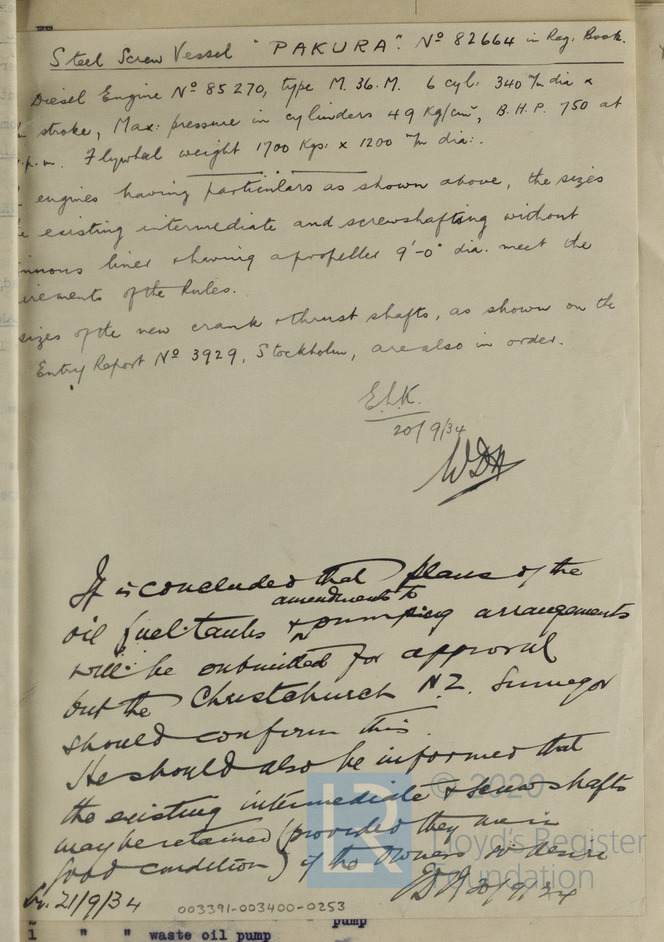 Steel Screw Vessel "PAKURA". Nº 82664 in Reg. Book.
Diesel Engine Nº 85270, type M.36.M. 6 cyl: 340 m/m dia ×
stroke, Max: pressure in cylinders 49 Kg/cm², B.H.P. 750 at
.p.m. Flywheel weight 1700 Kgs: × 1200 m/m dia:.
engines having particulars as shown above, the sizes
existing intermediate and screwshafting without
nuous liner & having a propeller 9'-0" dia. meet the
irements of the Rules.
sizes of the new crank & thrust shafts, as shown on the
Entry Report Nº 3929, Stockholm, are also in order.
E.L.K.
20/9/34
It is concluded that plans of the
amendments to
oil fuel tanks & pumping arrangements
will be submitted for approval
but the Christchurch N.Z. Surveyor
should confirm this.
He should also be informed that
the existing intermediate & screw shafts
may be retained (provided they are in
good condition) if the Owners so desire
20/9/34
21/9/34
003391-003400-0253
© 2020
LR
Lloyd's Register
Foundation
pump
1 " " waste oil pump